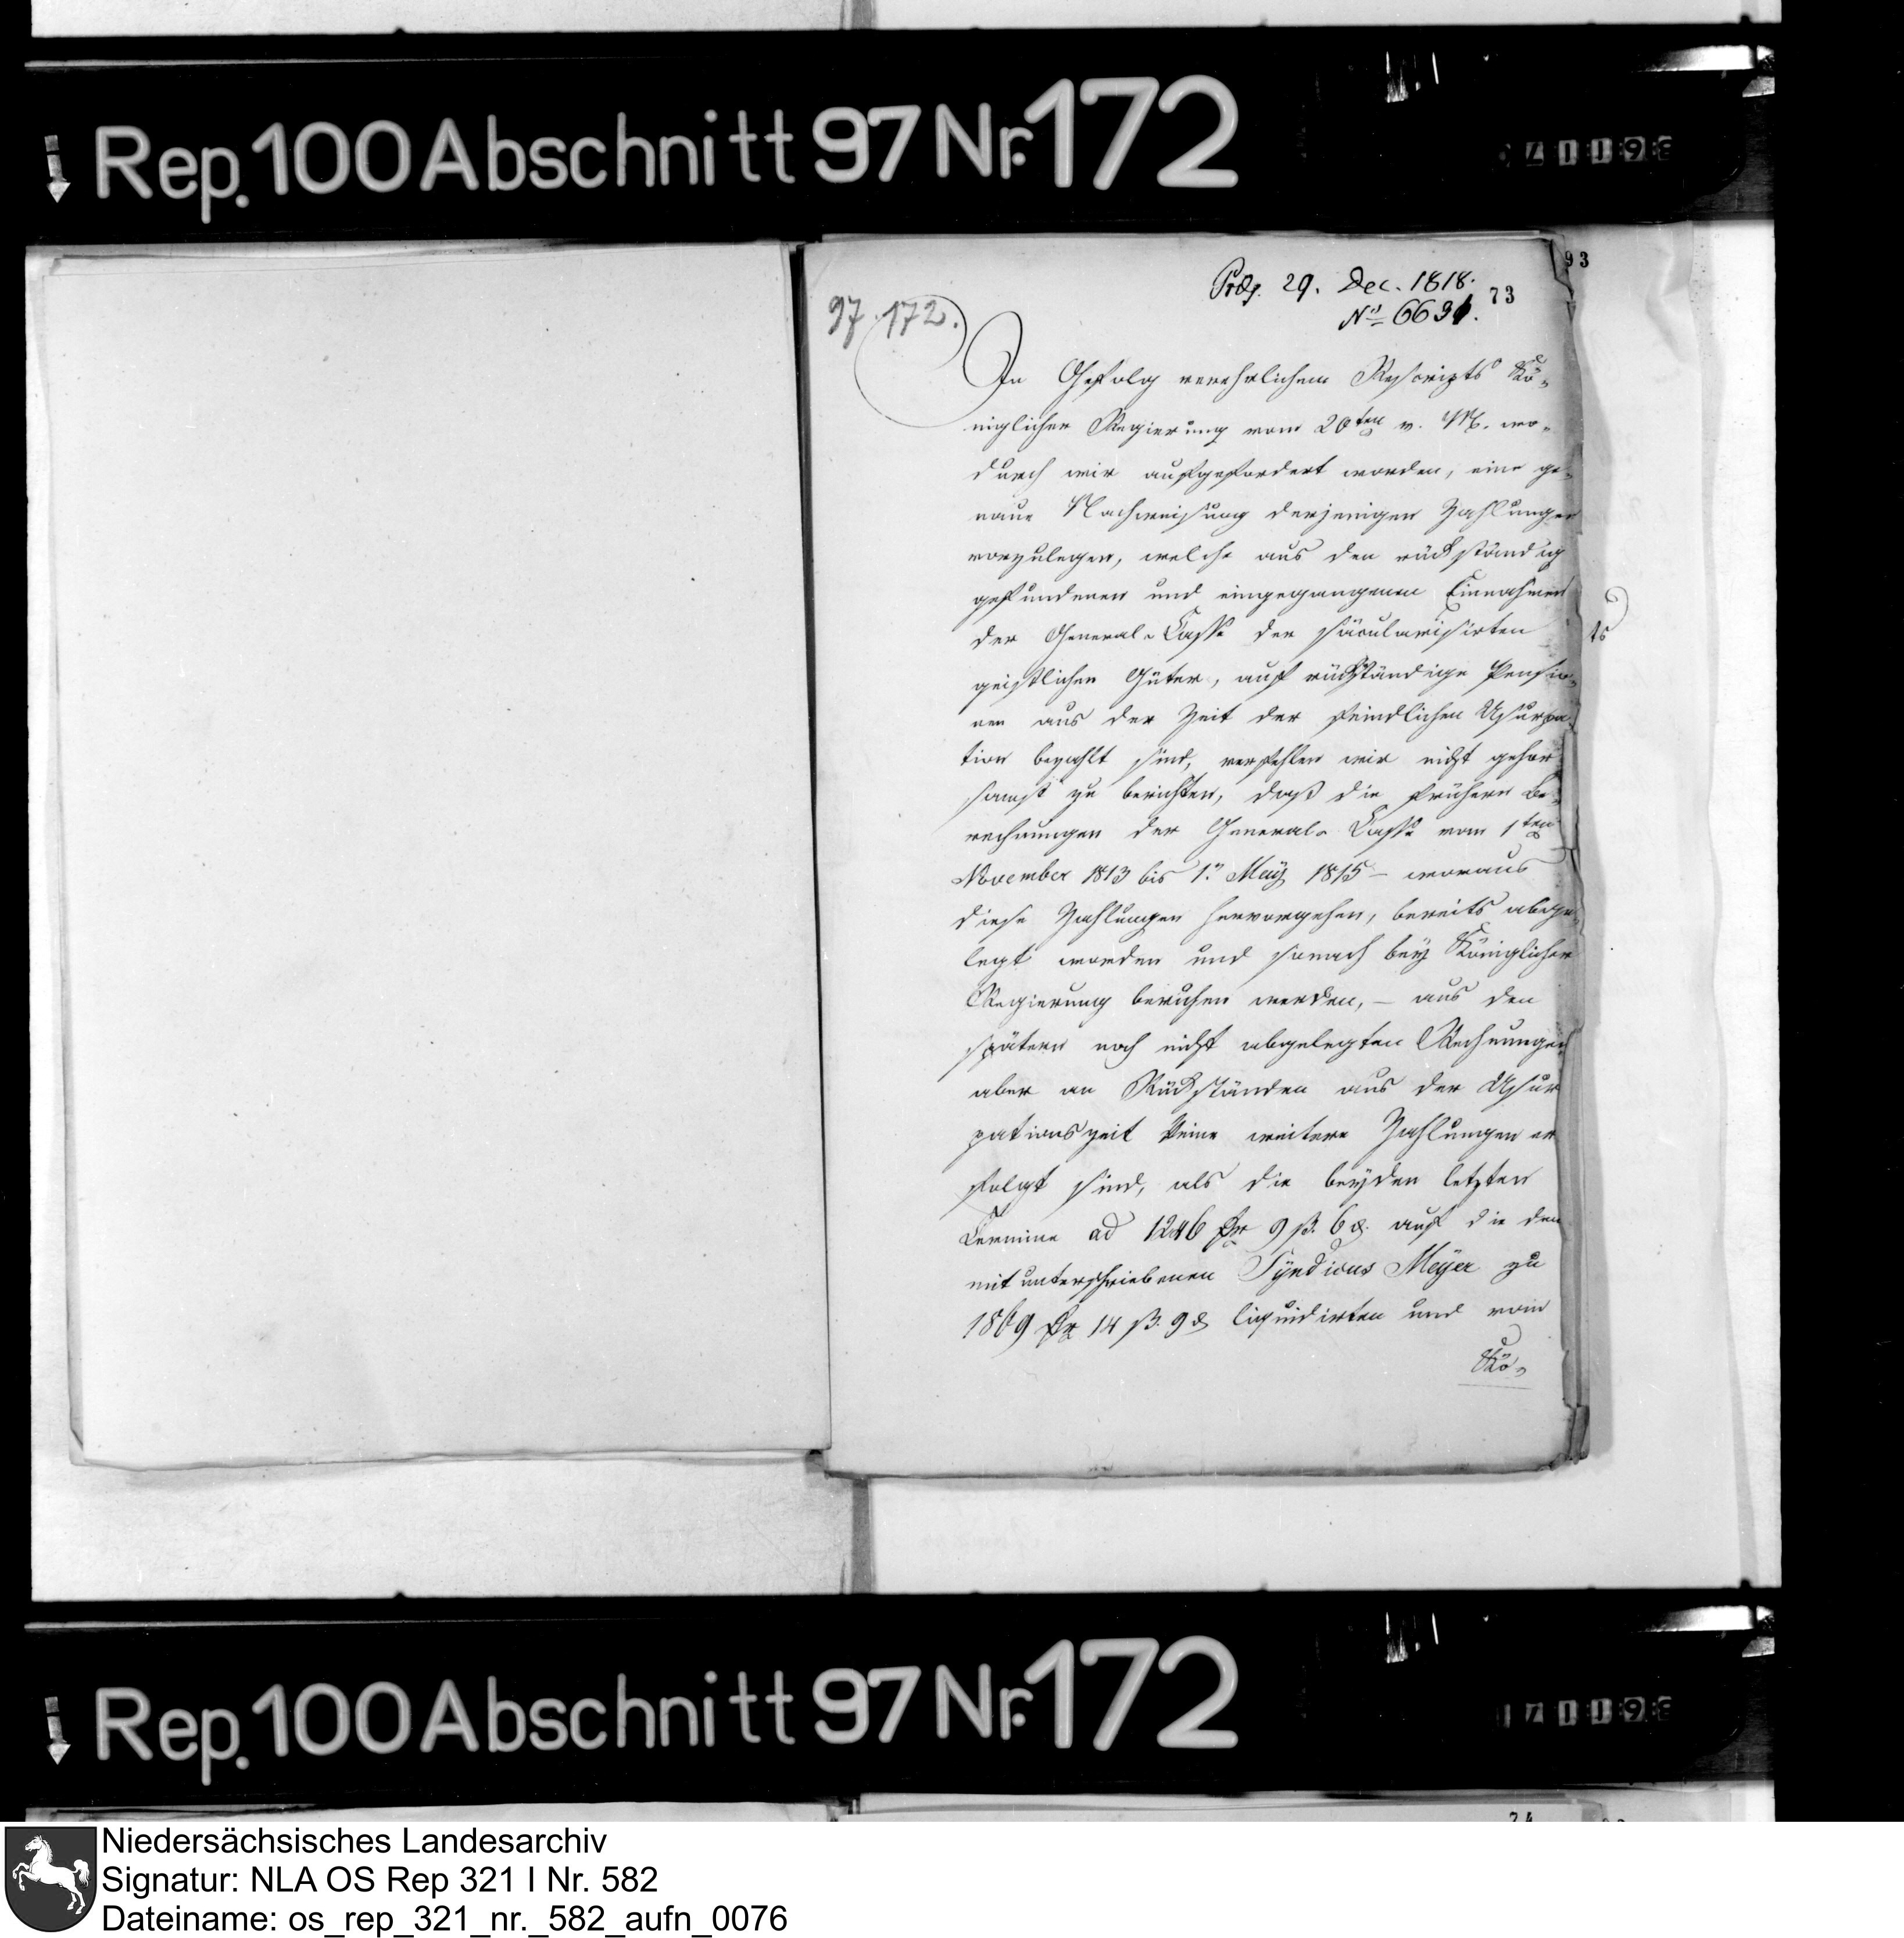 Rep. 100 Abschnitt 97 Nr. 172
93
Präs. 29. Dec. 1818.
73
No 6631.
97. 172.
In Gefolg verehrlichen Rescripts Kö-
niglicher Regierung vom 20ten v. M. wo-
durch wir aufgefordert worden, eine ge-
naue Nachweisung derjenigen Zahlungen
vorzulegen, welche aus den rückständig
gefundenen und eingegangenen Einnahmen
der General-Casse der säcularisirten
geistlichen Güter, auf rückständige Pensio-
nen aus der Zeit der feindlichen Usurpa-
tion bezahlt sind, verfehlen wir nicht gehor
samst zu berichten, daß die frühern Be-
rechnungen der General-Casse vom 1ten
November 1813 bis 1n May 1815 - woraus
diese Zahlungen hervorgehen, bereits abge-
legt worden und sonach bey Königlicher
Regierung beruhen werden, - aus den
spätern noch nicht abgelegten Rechnungen
aber an Rückständen aus der Usur
pationszeit keine weitere Zahlungen er
folgt sind, als die beyden letzten
Termine ad 1246 9 ß. 6 d. auf die dem
mitunterschriebenen Syndicus Meyer zu
1869 14 ß. 9 d liquidirten und vom
Kö-
Rep. 100 Abschnitt 97 Nr. 172
74
Niedersächsisches Landesarchiv
Signatur: NLA OS Rep 321 I Nr. 582
Dateiname: os_rep_321_nr._582_aufn_0076